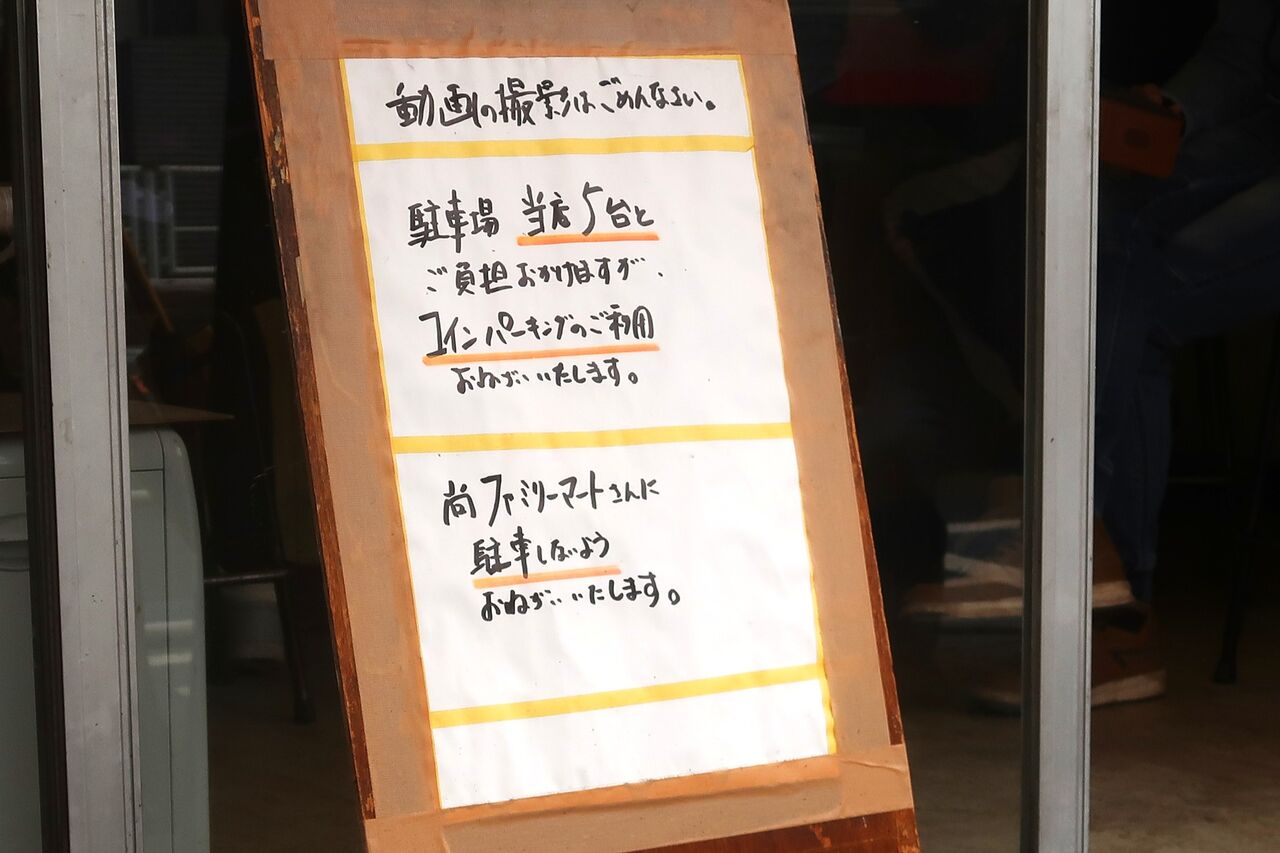 動画の撮影はごめんなさい。
駐車場 当店5台と
ご負担おかけますが、
コインパーキングのご利用
おねがいいたします。
尚ファミリーマートさんに
駐車しないよう
おねがいいたします。